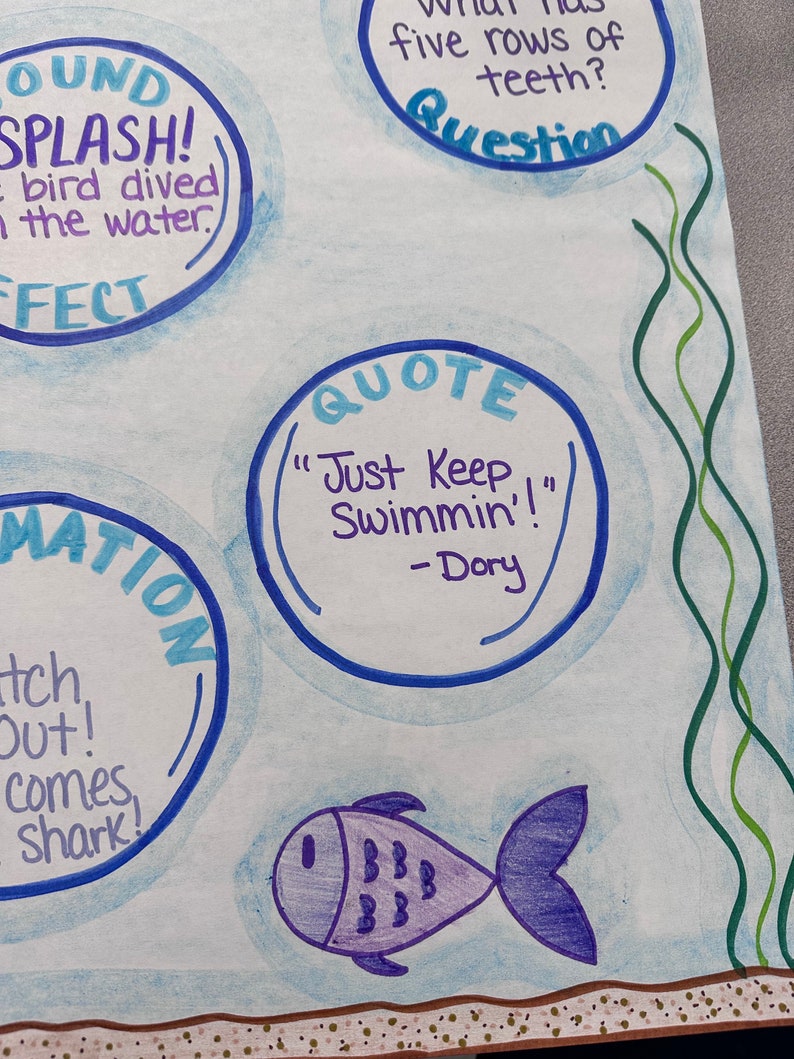 What has
five rows of
teeth?
Question
OUND
SPLASH!
bird dived
the water.
FFECT
QUOTE
"Just Keep
Swimmin'!"
-Dory
MATION
tch
out!
comes,
shark!